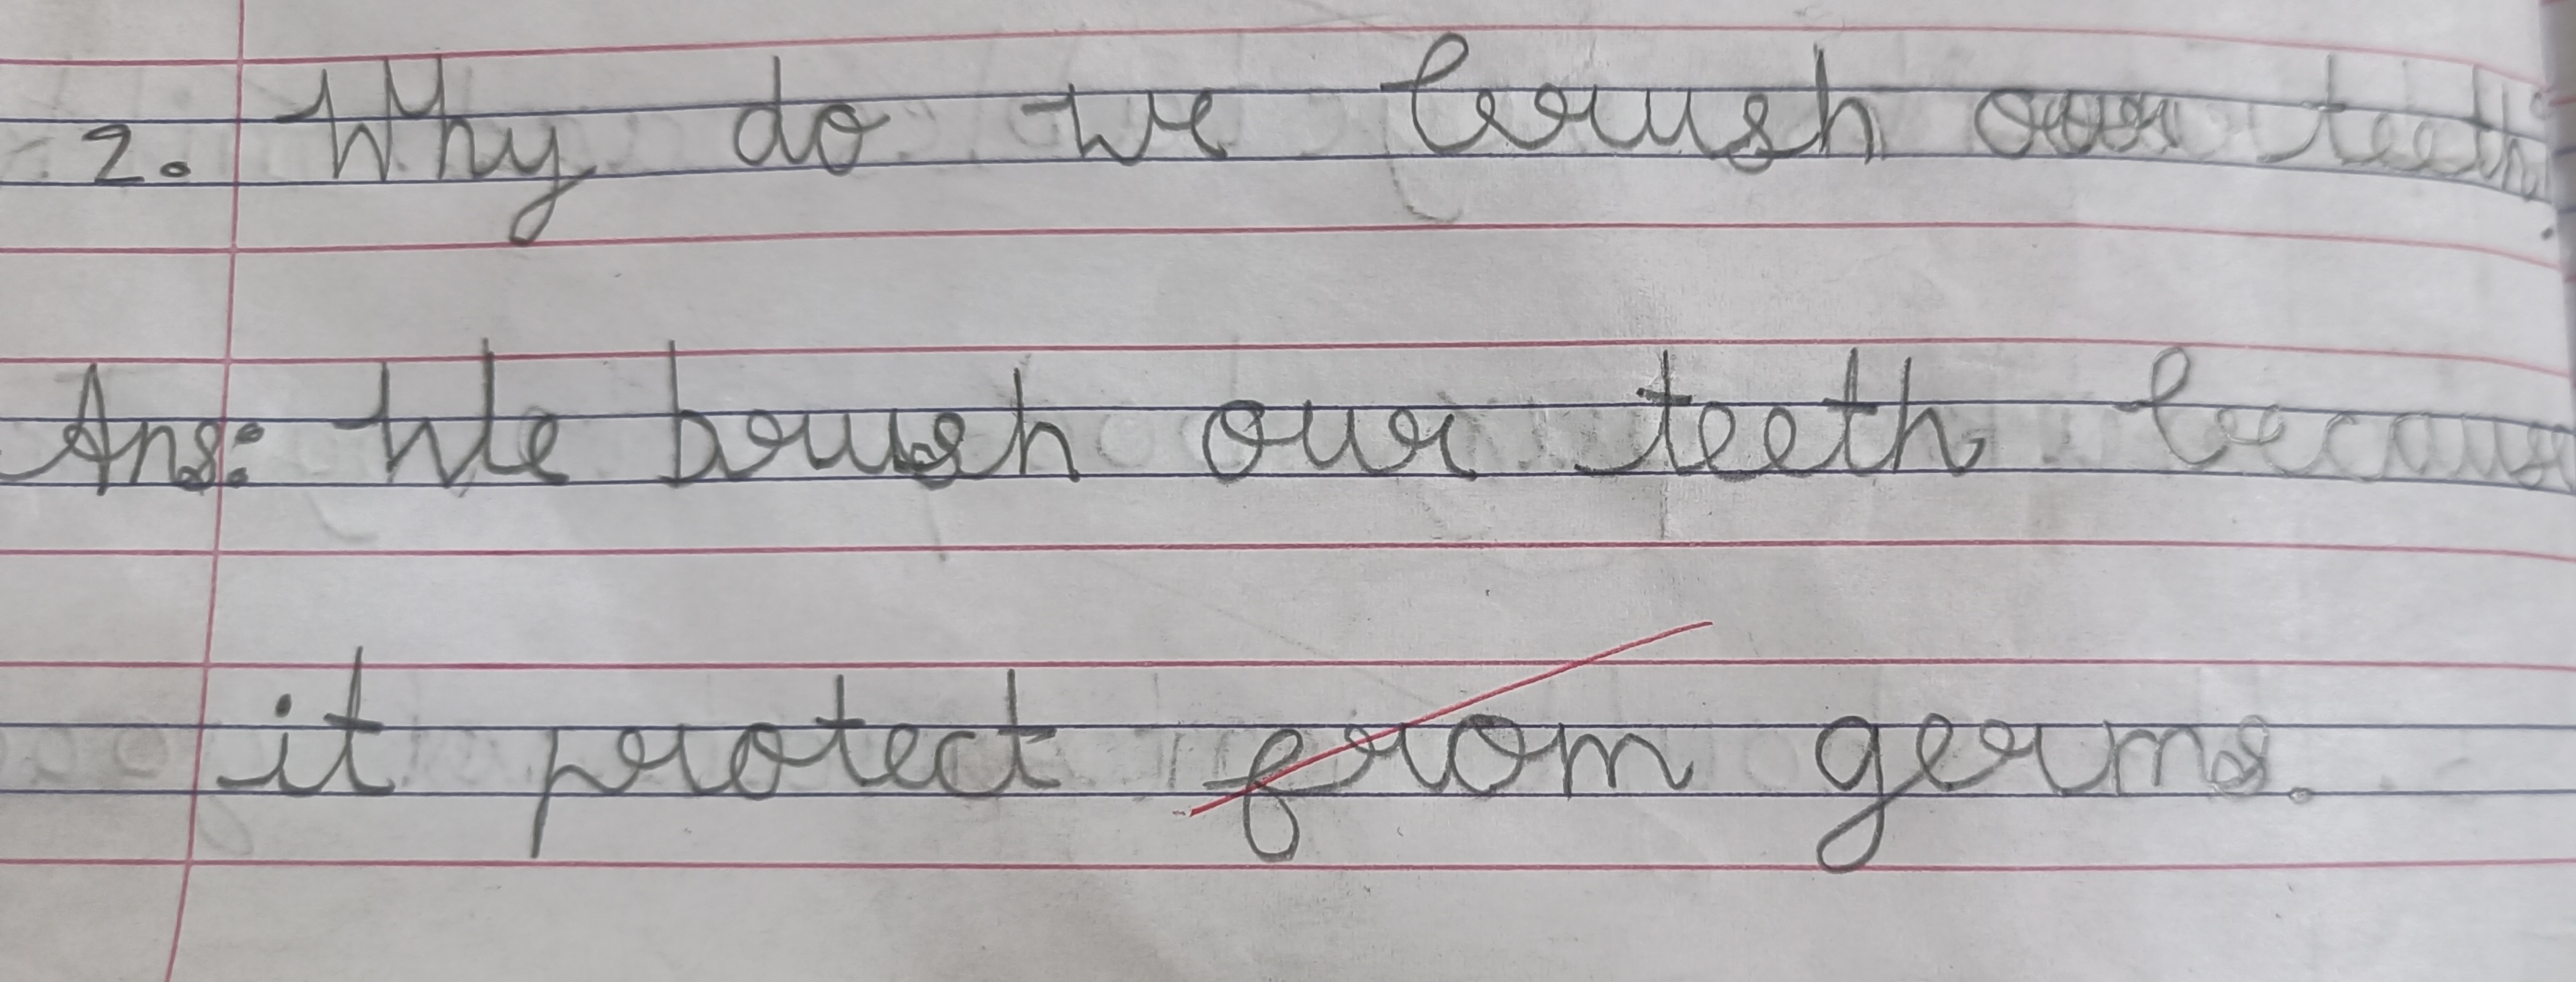 2. Why do we brush our teeth
Ans: We brush our teeth because
it protect from germs.